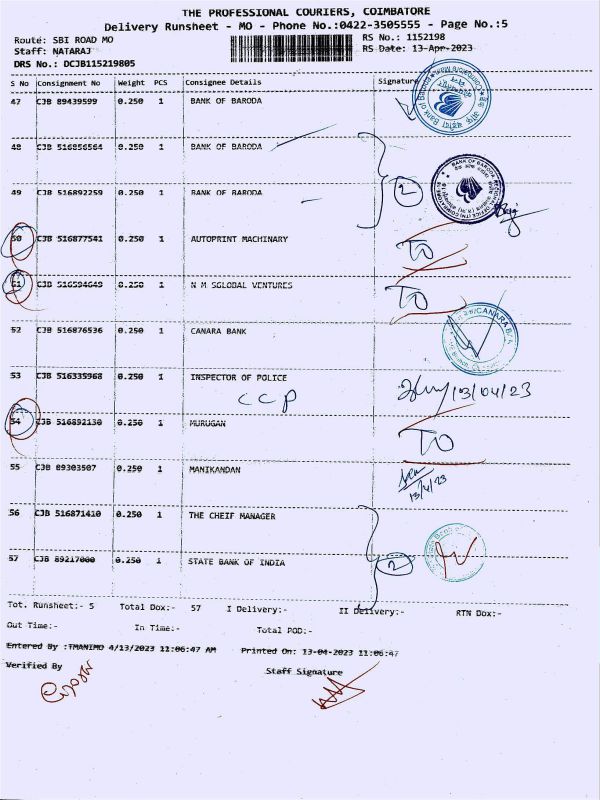 THE PROFESSIONAL COURIERS, COIMBATORE
Delivery Runsheet - MO - Phone No.:0422-3505555 - Page No.:5
Route: SBI ROAD MO RS No.: 1152198
Staff: NATARAJ RS Date: 13-Apr-2023
DRS No.: DCJB115219805
S No Consignment No Weight PCS Consignee Details Signature
47 CJB 89439599 0.250 1 BANK OF BARODA
48 CJB 516856564 0.250 1 BANK OF BARODA
49 CJB 516892259 0.250 1 BANK OF BARODA 2
50 CJB 516877541 0.250 1 AUTOPRINT MACHINARY TO
51 CJB 516594649 0.250 1 N M SGLOBAL VENTURES TO
52 CJB 516876536 0.250 1 CANARA BANK
53 CJB 516335968 0.250 1 INSPECTOR OF POLICE 13/04/23
CCP
54 CJB 516892130 0.250 1 MURUGAN TO
55 CJB 89303507 0.250 1 MANIKANDAN 13/4/23
56 CJB 516871410 0.250 1 THE CHEIF MANAGER
57 CJB 89217000 0.250 1 STATE BANK OF INDIA 2
Tot. Runsheet:- 5 Total Dox:- 57 I Delivery:- II Delivery:- RTN Dox:-
Out Time:- In Time:- Total POD:-
Entered By :TMANIMO 4/13/2023 11:06:47 AM Printed On: 13-04-2023 11:06:47
Verified By Staff Signature